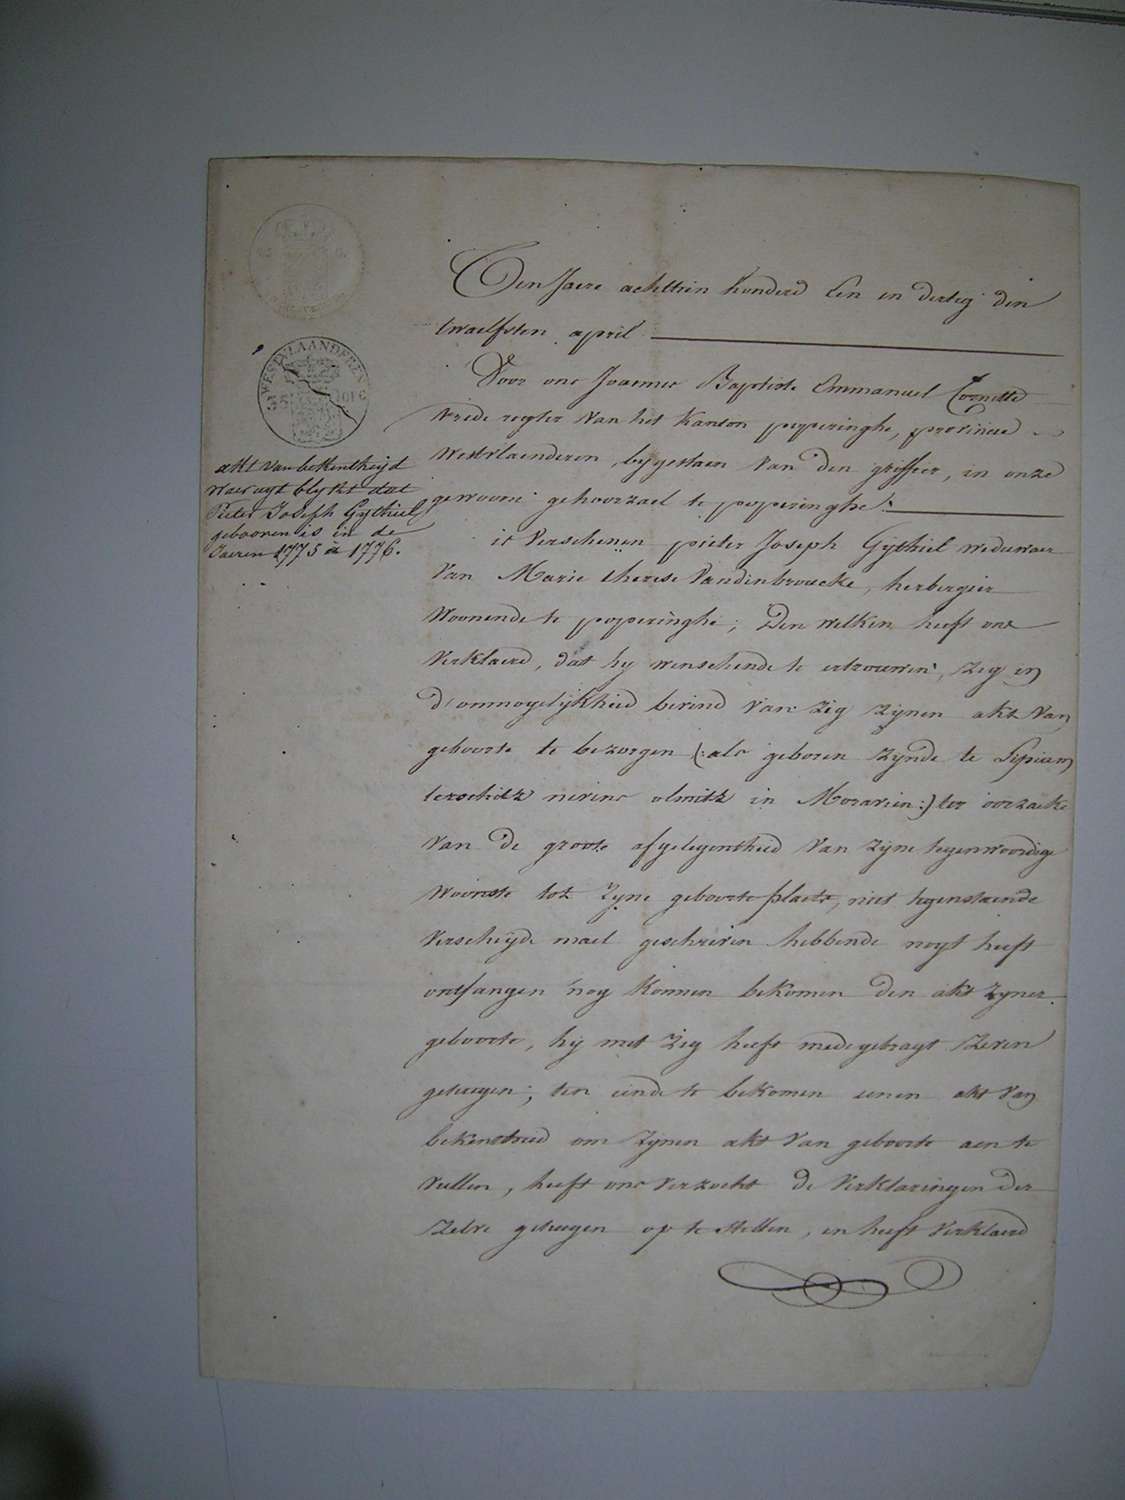 WESTVLAANDEREN
akt van bekentheijd
waer uyt blykt dat
Pieter Joseph Gythiel
gebooren is in de
Jaeren 1775 à 1776.
Den Jaere achttien honderd Een en dertig den
twaelfsten april
Voor ons Joannes Baptiste Emmanuel
vrede regter van het Kanton poperinghe, provincie
Westvlaenderen, bygestaen van den greffier, in onze
gewoone gehoorzael te poperinghe
is verschenen pieter Joseph Gythiel weduwaer
van Marie therese Vandenbroucke, herbergier
Woonende te poperinghe; Den welken heeft ons
verklaerd, dat hy wenschende te ertrouwen, zig in
d'ommogelykheid bevind van zig zynen akt van
geboorte te bezorgen (:als geboren zynde te
nevens olmitz in Moravien:) ter oorzaeke
van de groote afgelegentheid van zyne tegenwoordige
woonste tot zyne geboorte plaets, niet tegenstaende
verscheyde mael geschreven hebbende noyt heeft
ontfangen nog konnen bekomen den akt zyner
geboorte, hy met zig heeft medegebragt zeven
getuigen; ten einde te bekomen eenen akt van
bekentheid om zynen akt van geboorte aen te
vullen, heeft ons verzocht de verklaringen der
zelve getuigen op te stellen, en heeft verklaerd